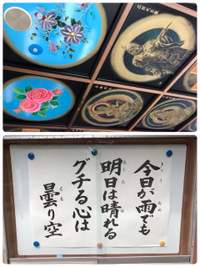 今日が雨でも
明日は晴れる
グチる心は
曇り空